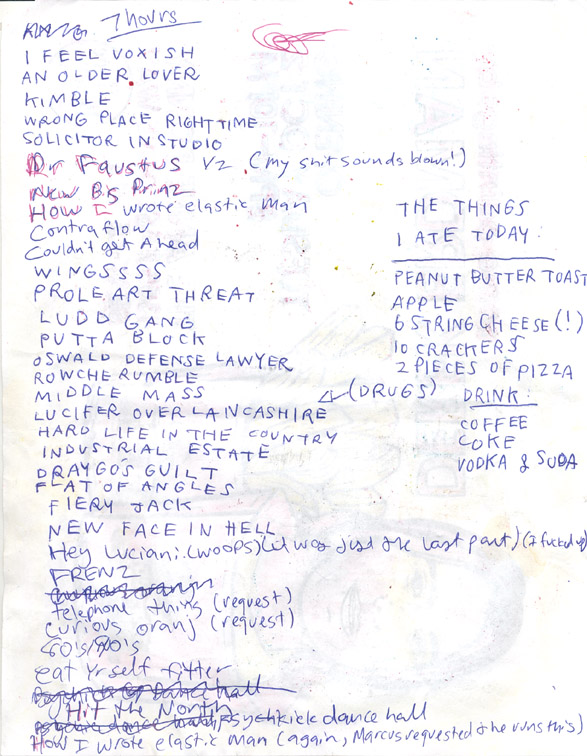 7 hours
I FEEL VOXISH
AN OLDER LOVER
KIMBLE
WRONG PLACE RIGHT TIME
SOLICITOR IN STUDIO
Dr Faustus V2 (my shit sounds blown!)
New Big Prinz
How I wrote elastic man
Contraflow
Couldn't get Ahead
WINGSSSS
PROLE ART THREAT
LUDD GANG
PUTTA BLOCK
OSWALD DEFENSE LAWYER
ROWCHE RUMBLE
MIDDLE MASS
(DRUGS)
LUCIFER OVER LANCASHIRE
HARD LIFE IN THE COUNTRY
INDUSTRIAL ESTATE
DRAYGO'S GUILT
FLAT OF ANGLES
FIERY JACK
NEW FACE IN HELL
Hey Luciani. (woops) (it was just the last part) (I fucked up)
FRENZ
telephone thing (request)
Curious oranj (request)
60's/90's
eat yrself fitter
Hit the North
psychkick dance hall
How I wrote elastic man (again, Marcus requested & he runs this)
THE THINGS
I ATE TODAY:
PEANUT BUTTER TOAST
APPLE
6 STRING CHEESE (!)
10 CRACKERS
2 PIECES OF PIZZA
DRINK:
COFFEE
COKE
VODKA & SODA